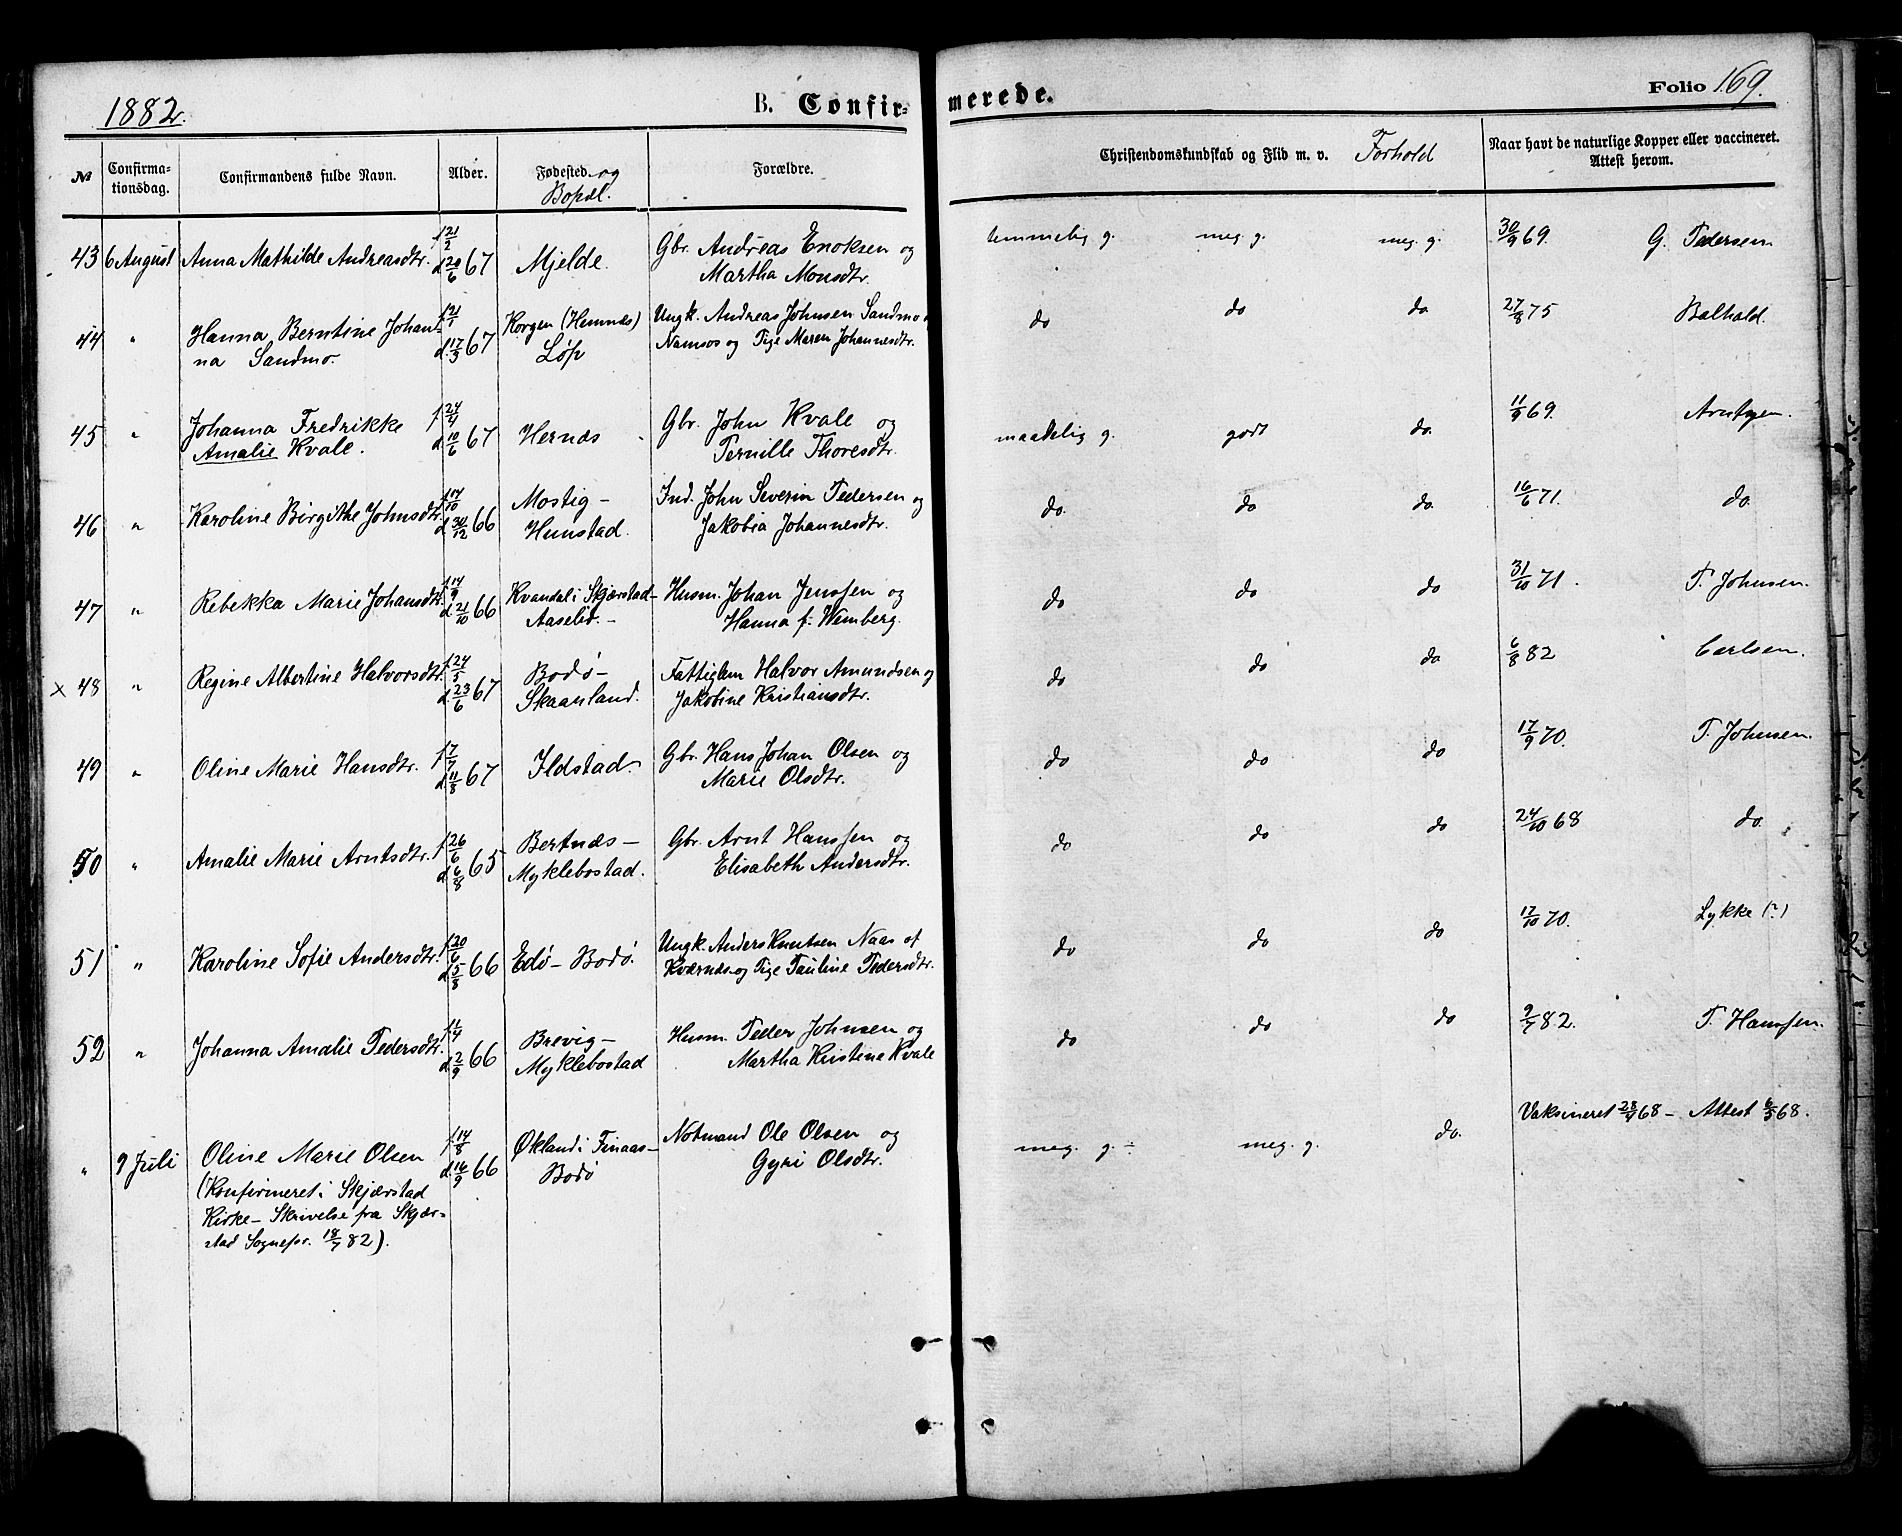 1882.
B. Confir-
merede.
Folio 169.
№
Confirma-
tionsdag.
Confirmandens fulde Navn.
Alder.
Fødested. og
Bopæl.
Forældre.
Christendomskundskab og Flid m. v. Forhold
Naar havt de naturlige Kopper eller vaccineret.
Attest herom.
43 6 August Anna Mathilde Andreasdtr. f. 21/2 d. 20/6 67 Mjelde. Gbr. Andreas Enoksen og
Martha Monsdtr.
temmelig g. meg. g. meg. g. 30/9 69. G. Pedersen
44 " Hanna Berntine Johan-
na Sandmo. f. 21/1 d. 17/3 67 Korgen (Hemnæs)
Løp Ungk. Andreas Johnsen Sandmo
Namsos og Pige Maren Johannesdtr.
do do do 27/8 75 Balhald.
45 " Johanna Fredrikke
Amalie Kvale. f. 24/4 d. 10/6 67 Hernæs Gbr. John Kvale og
Pernille Thoresdtr.
maadelig g. godt do. 11/9 69. Arntzen.
46 " Karoline Birgithe Johnsdtr. f. 14/10 d. 30/12 66 Mostig-
Hunstad. Ind. John Severin Pedersen og
Jakobia Johannesdtr.
do. do do. 16/6 71. do.
47 " Rebekka Marie Johansdtr. f. 14/9 d. 21/10 66 Kvandal i Skjærstad-
Aaselid.- Husm. Johan Jenssen og
Hanna f. Wemberg.
do do do 31/10 71. P. Johnsen.
x 48 " Regine Albertine Halvorsdtr. f. 24/5 d. 23/6 67 Bodø-
Skaanland. Fattiglem Halvor Amundsen og
Jakobine Kristiansdtr.
do do do 6/8 82 Carlsen.
49 " Oline Marie Hansdtr. f. 7/7 d. 11/8 67 Ildstad. Gbr. Hans Johan Olsen og
Marie Olsdtr.
do do do 17/9 70. P. Johnsen.
50 " Amalie Marie Arntsdtr. f. 26/6 d. 6/8 65 Bertnæs-
Myklebostad. Gbr. Arnt Hanssen og
Elisabeth Andersdtr.
do do do 24/10 68 do.
51 " Karoline Sofie Andersdtr. f. 20/6 d. 5/8 66 Edø- Bodø. Ungk. Anders Knutsen Naas af
Kværnæs og Pige Pauline Pedersdtr.
do do do 17/10 70. Lykke (?)
52 " Johanna Amalie Pedersdtr. f. 11/4 d. 2/9 66 Brevig-
Myklebostad Husm. Peder Johnsen og
Martha Kristine Kvale
do do do 9/7 82. P. Hanssen.
" 9 Juli Oline Marie Olsen
(Konfirmeret i Skjærstad
Kirke- Skrivelse fra Skjær-
stad Sognepr. 18/7 82). f. 14/8 d. 16/9 66 Økland i Finaas-
Bodø Notmand Ole Olsen og
Gyri Olsdtr.
meg. g.- meg. g. do. Vaksineret 28/4 68- Attest 6/5 68.